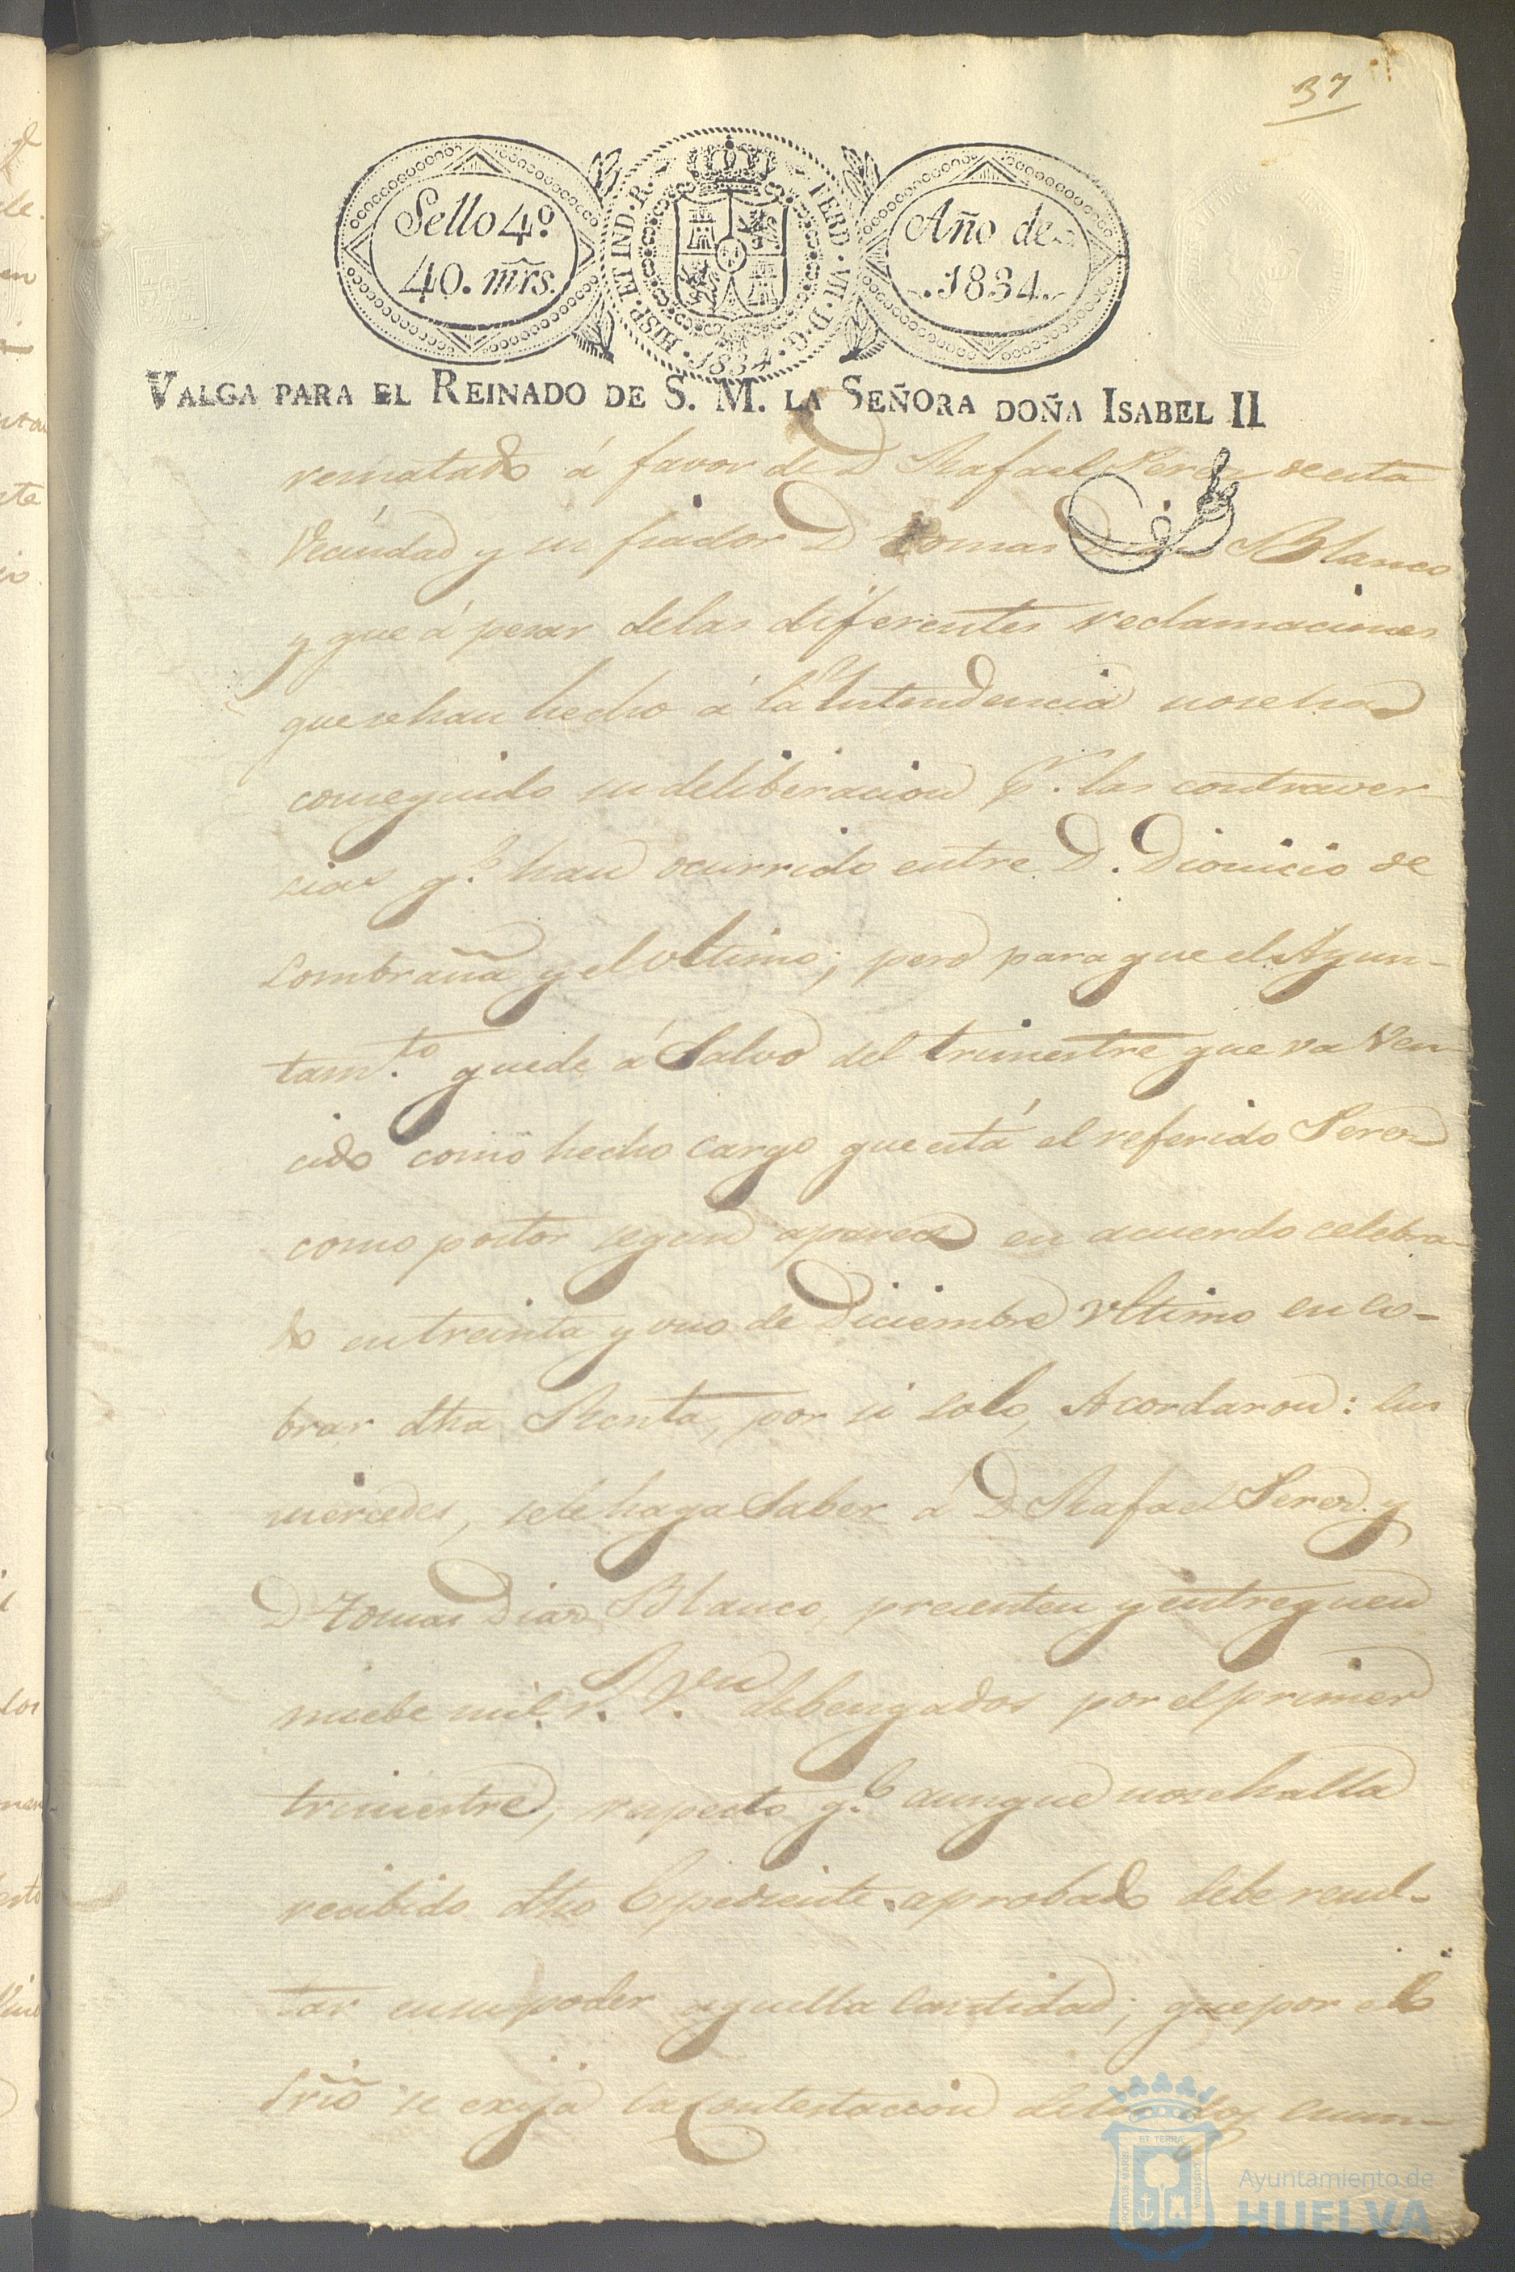 37
Sello 4º
40. mrs.
HISP. ET IND. R. FERD. VII. D. G. 1834.
Año de
1834.
VALGA PARA EL REINADO DE S. M. LA SEÑORA DOÑA ISABEL II
rematado á favor de D Rafael Perez de esta
Vecindad y su fiador D Tomas Diaz Blanco
y que á pesar delas diferentes reclamaciones
que sehan hecho á la Yntendencia nose ha
conseguido su deliberacion pr. las contraver-
cias qe. han ocurrido entre D. Dionicio de
Lombraña y el vltimo; pero para que el Ayun-
tamto. quede á Salvo del trimestre que va Ven
cido como hecho cargo que está el referido Perez
como postor segun aparece en acuerdo celebra-
do en treinta y uno de Diciembre Vltimo en co-
brar dha Renta, por si solo, Acordaron: sus
mercedes, sele haga Saber á D Rafael Perez y
D Tomas Diaz Blanco, presenten y entreguen
nuebe mil rs. Von debengados por el primer
trimestre, respecto qe. aunque nosehalla
recibido dho Espediente aprobado debe resul-
tar ensupoder aquella Cantidad; que por el
Srio se exija la Contestacion delos dos, cuum-
PORTUS MARIS ET TERRAE CUSTODIA
Ayuntamiento de
HUELVA